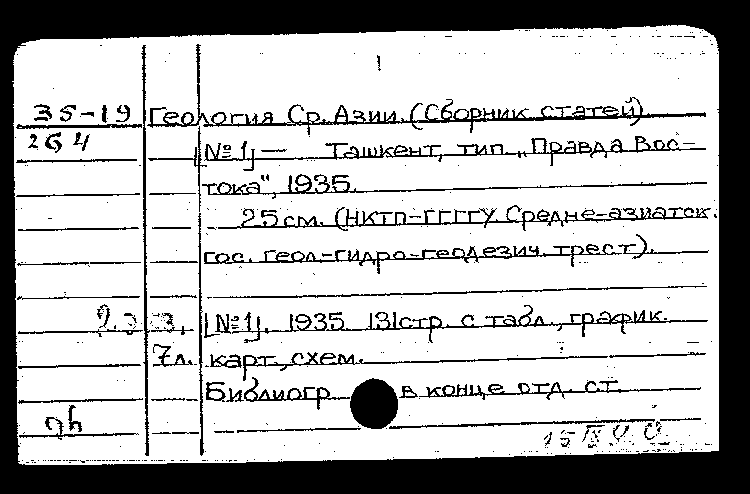 35-19 Геология Ср. Азии. (Сборник статей)
264
[№ 1] — Ташкент, тип. „Правда Вос-
тока", 1935.
25 см. (НКТП-ГГГГУ Средне-азиатск.
гос. геол-гидро-геодезич. трест).
[№ 1]. 1935 131 стр. с табл., график.
7 л. карт., схем.
Библиогр. в конце отд. ст.